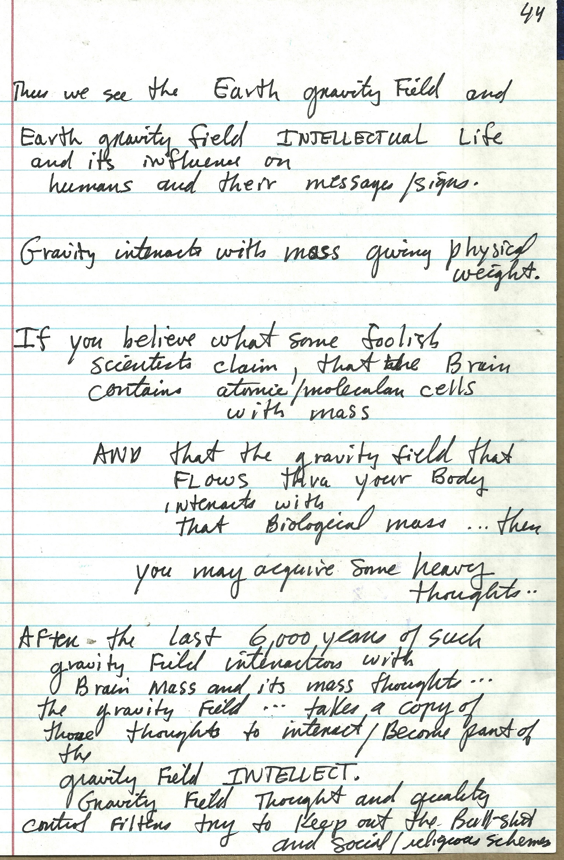 44
Thus we see the Earth gravity Field and
Earth gravity field INTELLECTUAL Life
and its influence on
humans and their messages/signs.
Gravity interacts with mass giving physical
weight.
If you believe what some foolish
scientists claim, that the Brain
contains atomic/molecular cells
with mass
AND that the gravity field that
FLOWS thru your Body
interacts with
that Biological mass ... then
you may acquire some heavy
thoughts..
AFter the last 6,000 years of such
gravity Field interaction with
Brain Mass and its mass thoughts ...
the gravity Field ... takes a copy of
those thoughts to interact/Become part of
the
gravity Field INTELLECT.
Gravity Field Thought and quality
control Filters try to keep out the Bull-shit
and social/religious schemes